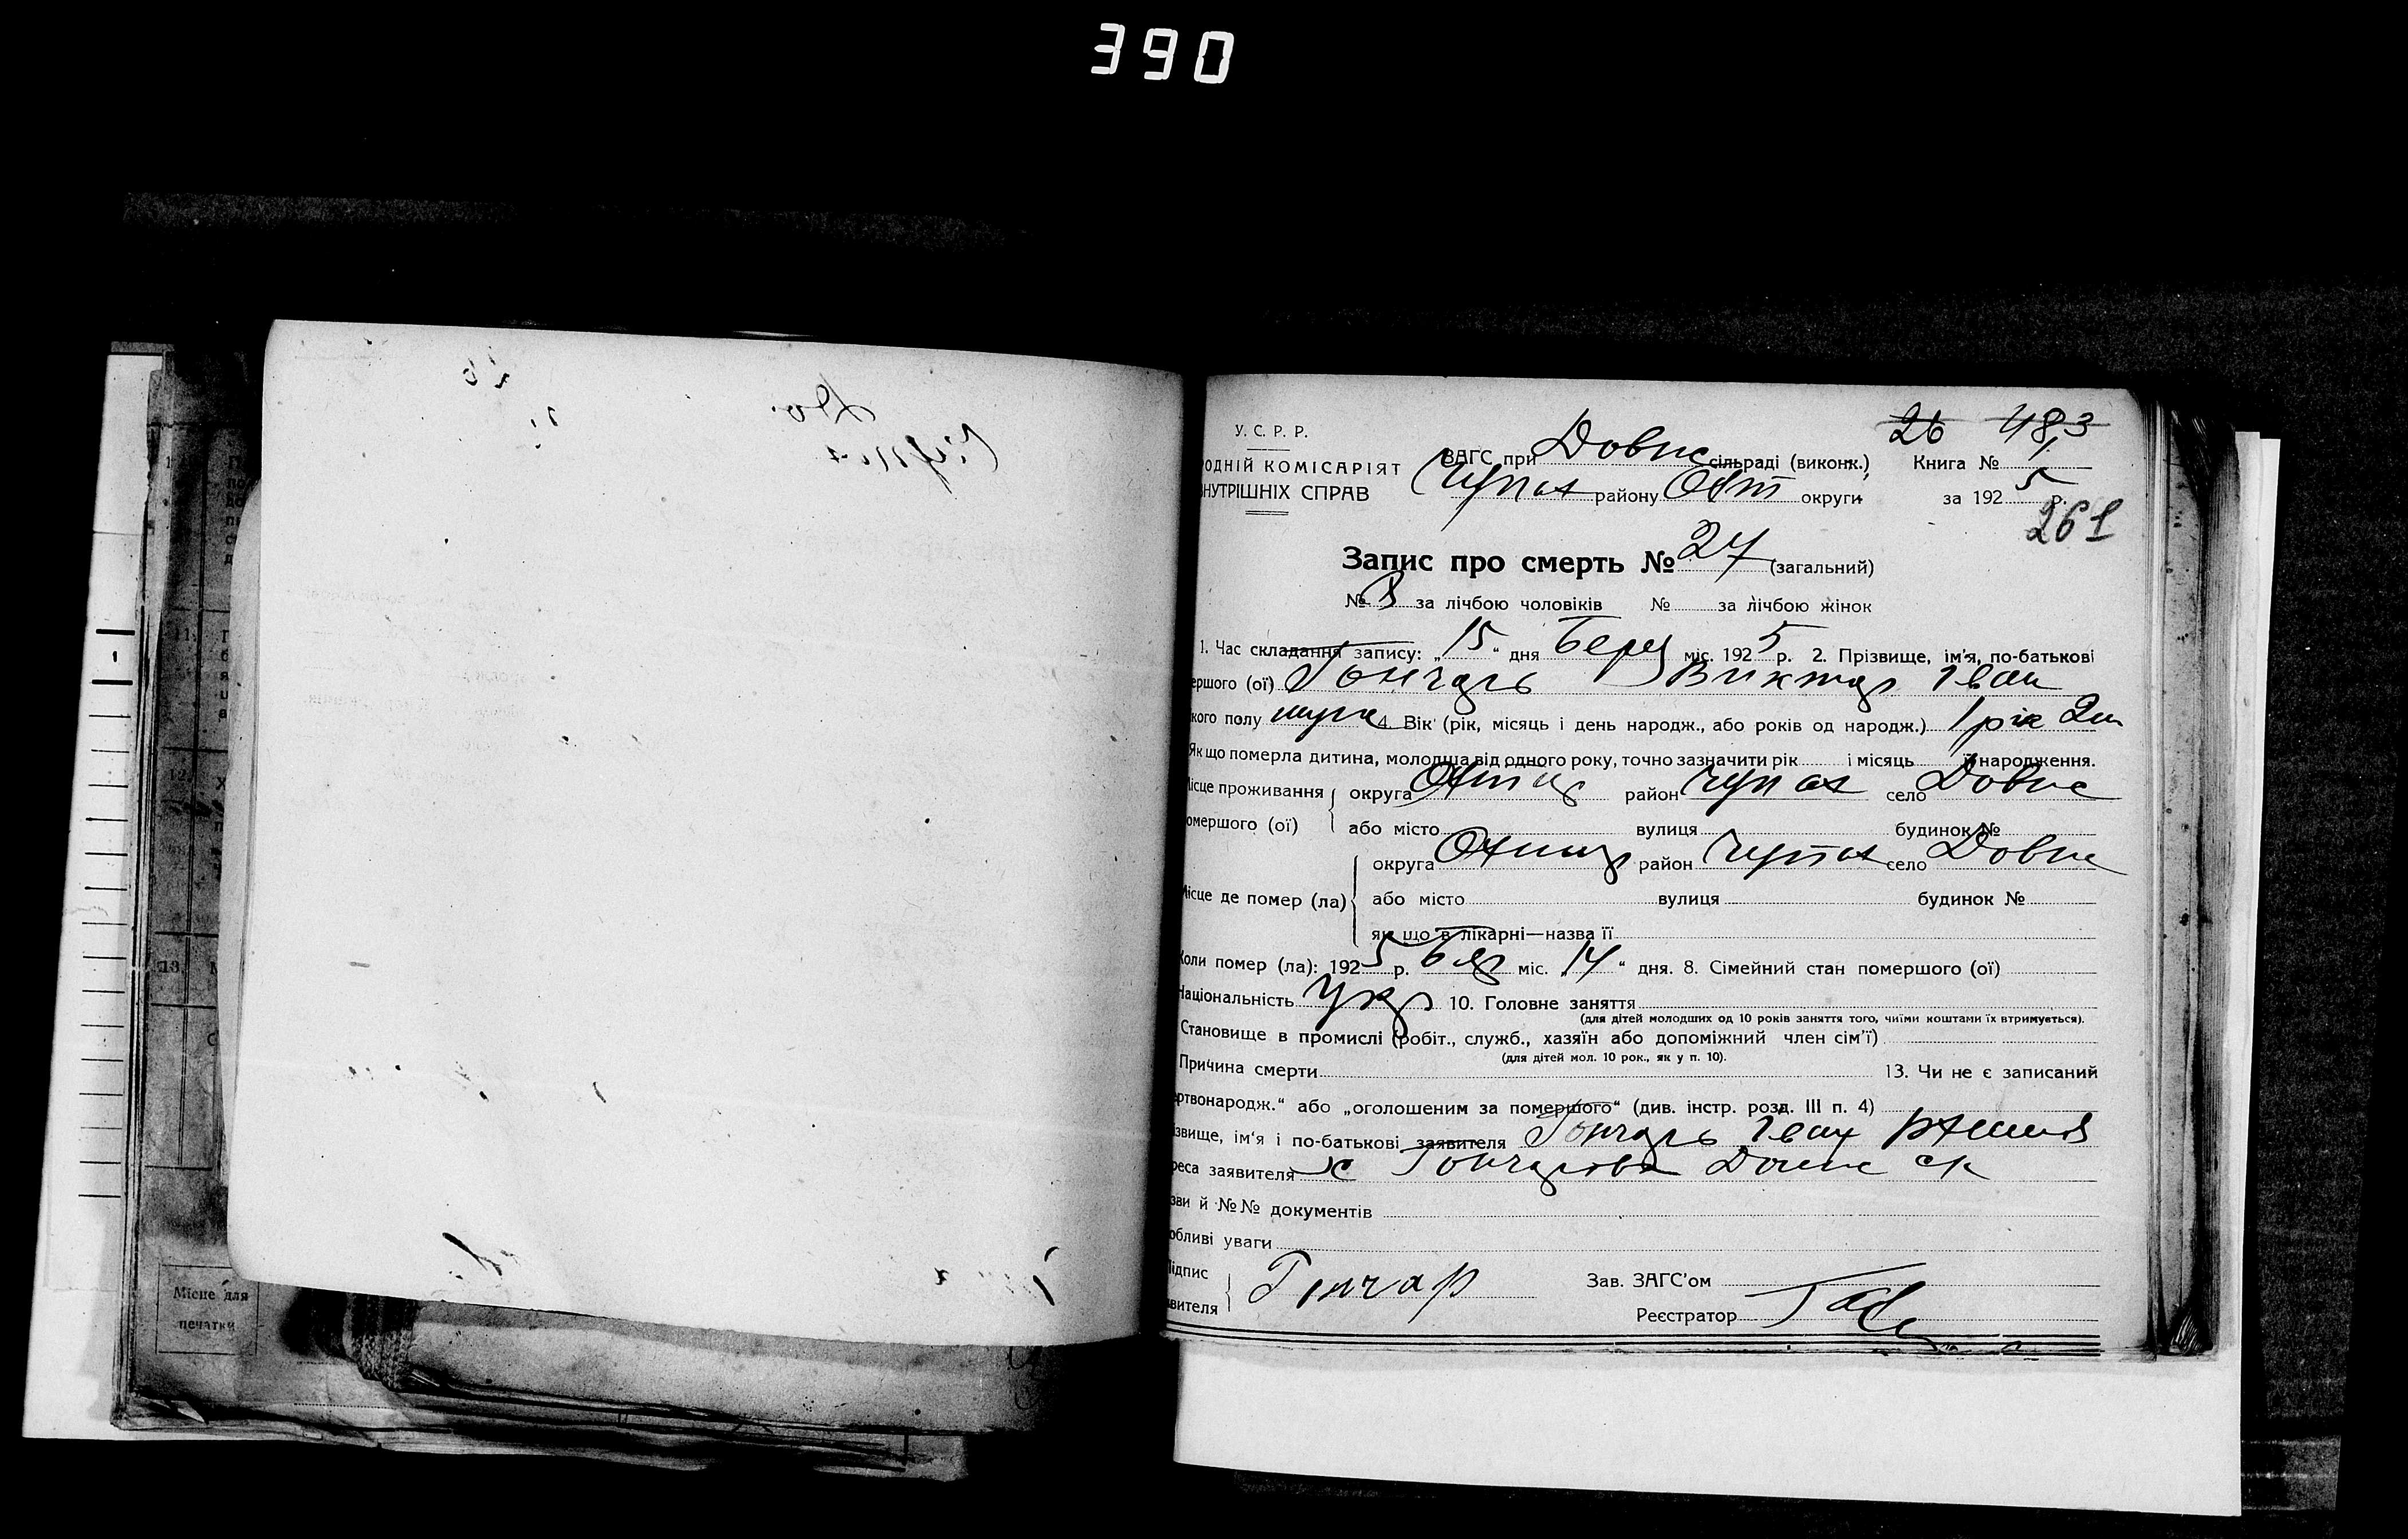 390
26 48,3
У. С. Р. Р.
ОДНІЙ КОМІСАРІЯТ
НУТРІШНІХ СПРАВ
ЗАГС при Довж сільраді (виконк.) Книга №
Чупах району Охт округи за 1925 р.
261
Запис про смерть № 27 (загальний)
№ за лічбою чоловіків № за лічбою жінок
1. Час складання запису: „15“ дня Берез міс. 1925 р. 2. Прізвище, ім'я, по-батькові
ершого (ої) Гончарь Виктор Іван
кого полу муж 4. Вік (рік, місяць і день народж., або років од народж.) 1 рік 2 м
Як що померла дитина, молодша від одного року, точно зазначити рік і місяць її народження.
ісце проживання округа район Чупах село Довж
омершого (ої) або місто вулиця будинок №
округа район Чупах село Довж
Місце де помер (ла) або місто вулиця будинок №
як що в лікарні—назва її
Коли помер (ла): 1925 р. міс. „14“ дня. 8. Сімейний стан помершого (ої)
Національність Укр 10. Головне заняття
(для дітей молодших од 10 років заняття того, чиїми коштами їх втримується).
Становище в промислі (робіт., служб., хазяїн або допоміжний член сім'ї)
(для дітей мол. 10 рок., як у п. 10).
Причина смерти 13. Чи не є записаний
ртвонародж.“ або „оголошеним за помершого“ (див. інстр. розд. III п. 4)
ізвище, ім'я і по-батькові заявителя Гончарь Іван
реса заявителя х Гончарова
зви й №№ документів
обливі уваги
Підпис
явителя Гончар
Зав. ЗАГС'ом
Реєстратор
Місце для
печатки